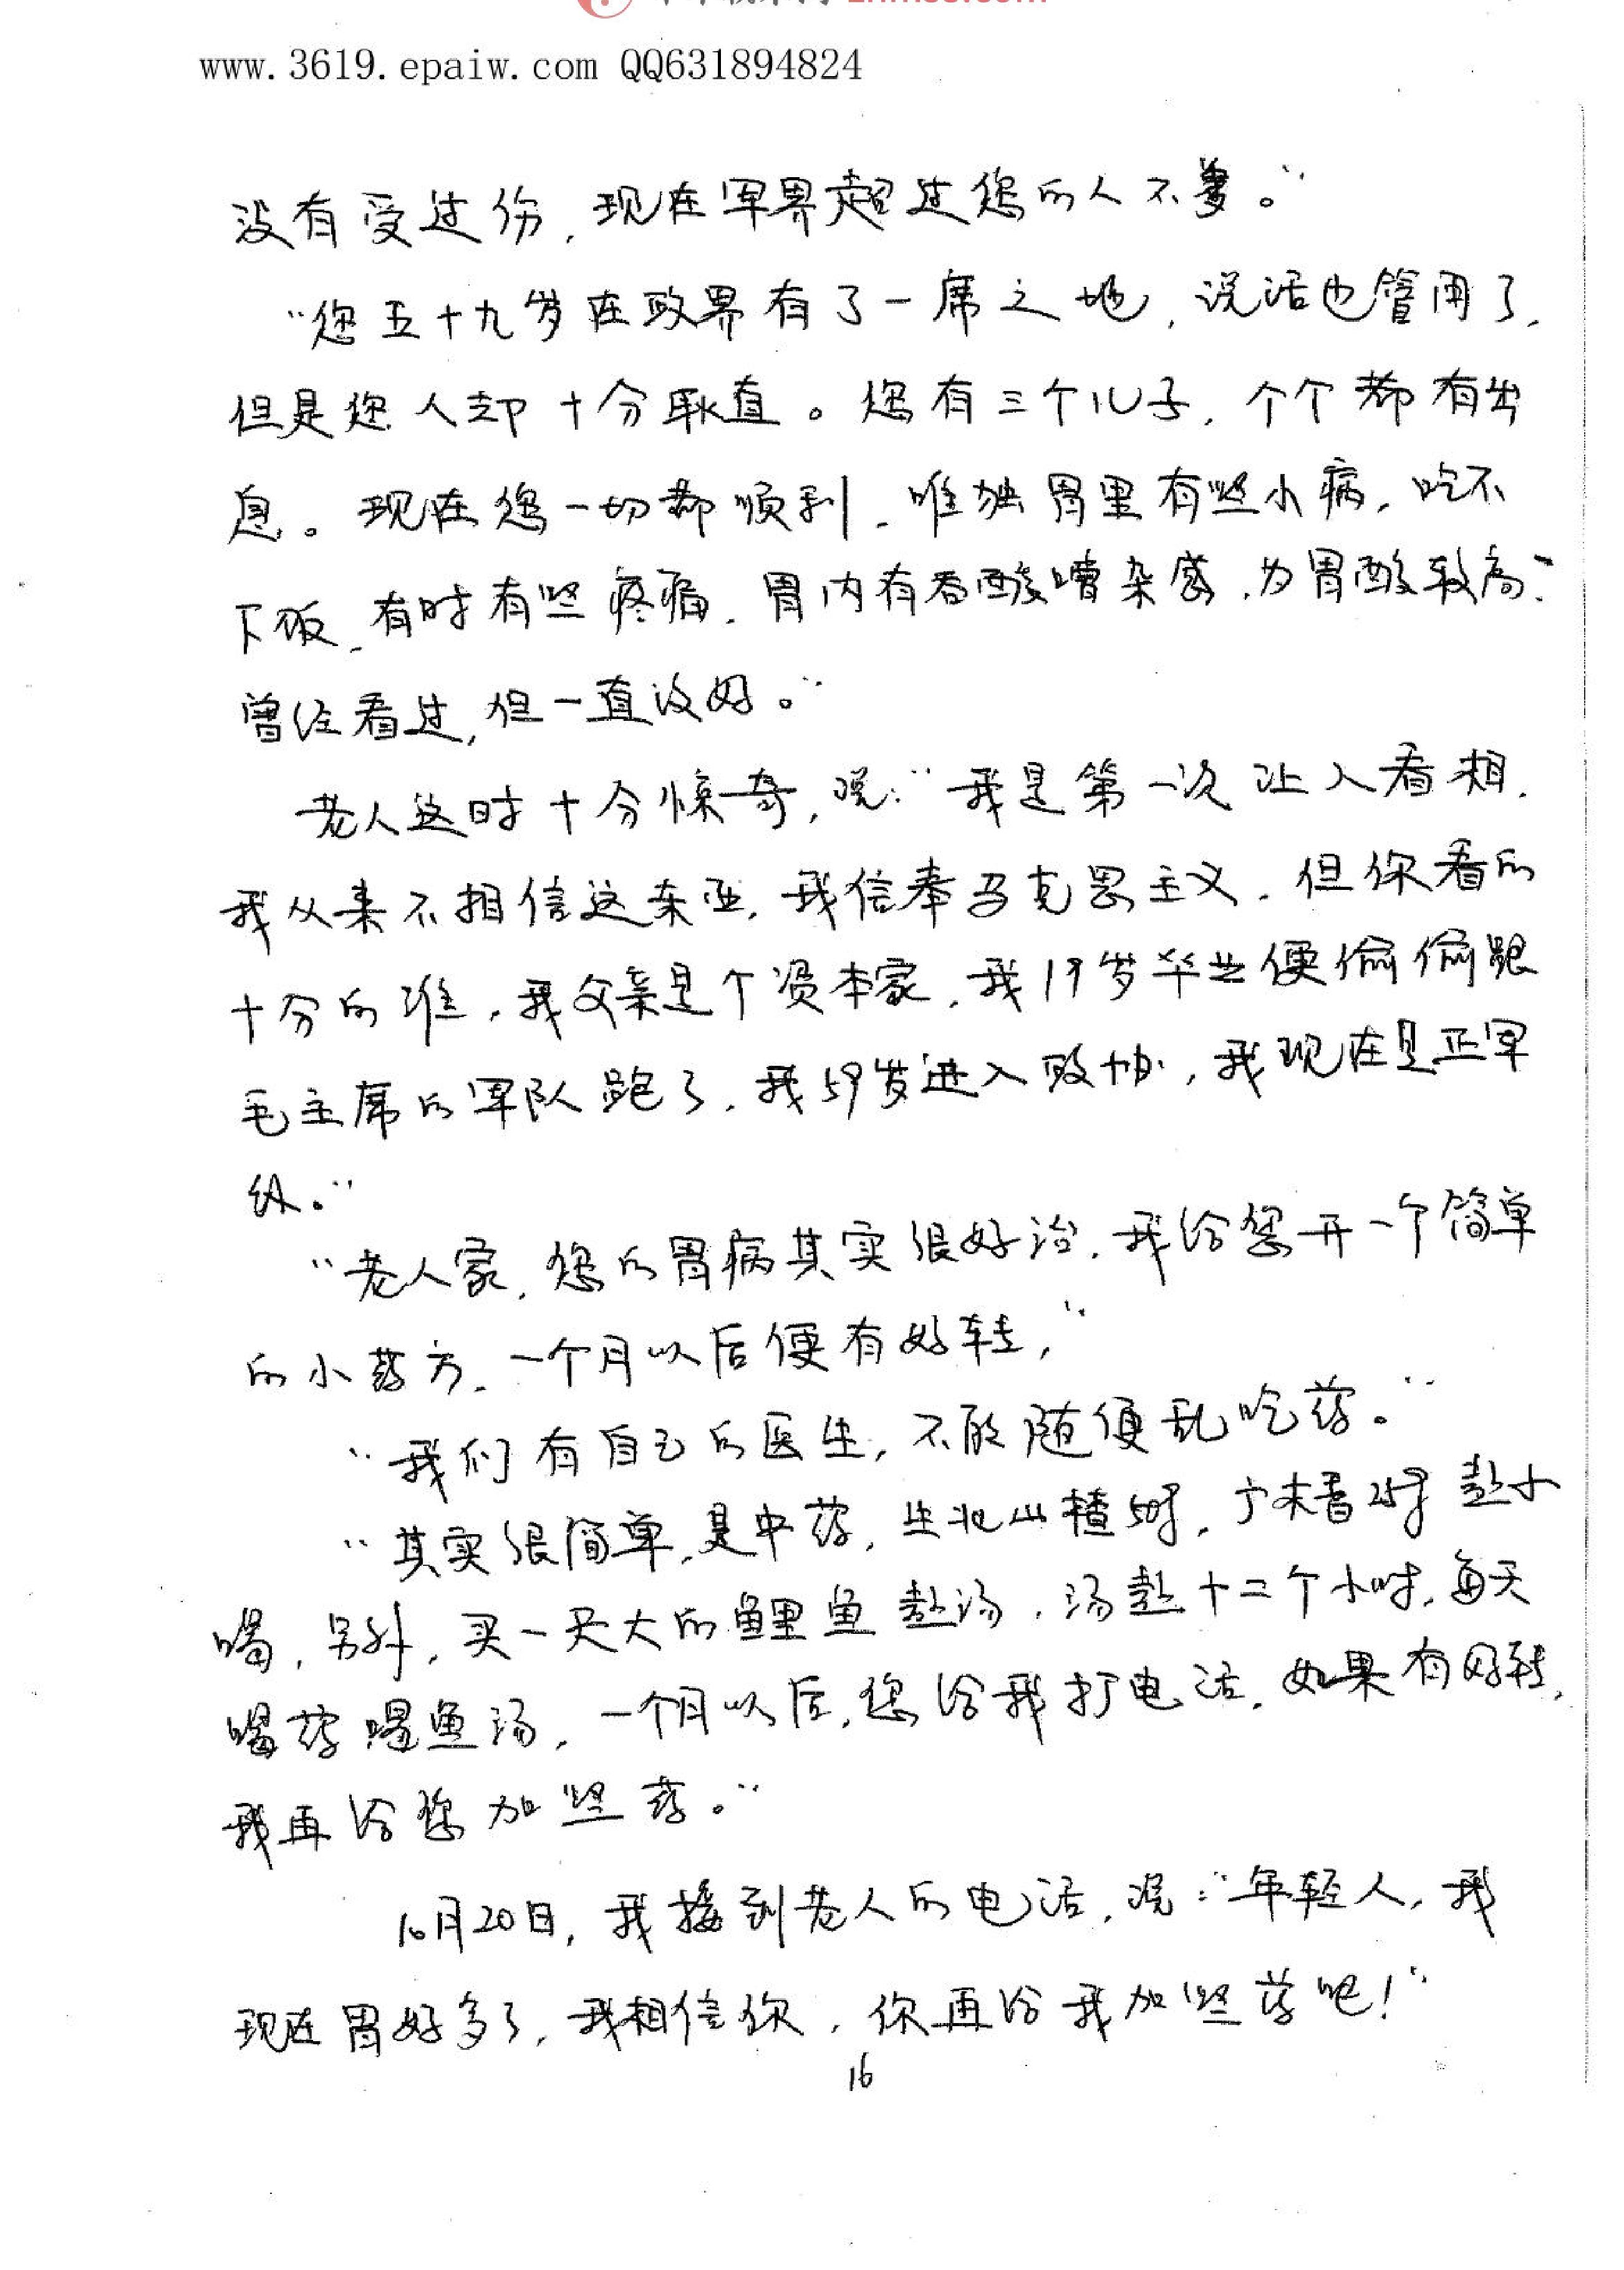 www.3619.epaiw.com QQ631894824
没有受过伤,现在军界超过您的人不多。"
"您五十九岁在政界有了一席之地,说话也管用了,
但是您人却十分耿直。您有三个儿子,个个都有出
息。现在您一切都顺利,唯独胃里有些小病,吃不
下饭,有时有些疼痛,胃内有吞酸嘈杂感,为胃酸较高,
曾经看过,但一直没好。"
老人这时十分惊奇,说:"我是第一次让人看相,
我从来不相信这东西,我信奉马克思主义,但你看的
十分的准,我父亲是个资本家,我19岁毕业便偷偷跟
毛主席的军队跑了,我59岁进入政协,我现在是正军
级。"
"老人家,您的胃病其实很好治,我给您开一个简单
的小药方,一个月以后便有好转,"
"我们有自己的医生,不敢随便乱吃药。"
"其实很简单,是中药,生北山楂50g,广木香25g 熬水
喝,另外,买一天大的鲤鱼熬汤,汤熬十二个小时,每天
喝药喝鱼汤,一个月以后,您给我打电话,如果有好转,
我再给您加些药。"
10月20日,我接到老人的电话,说:"年轻人,我
现在胃好多了,我相信你,你再给我加些药吧!"
16